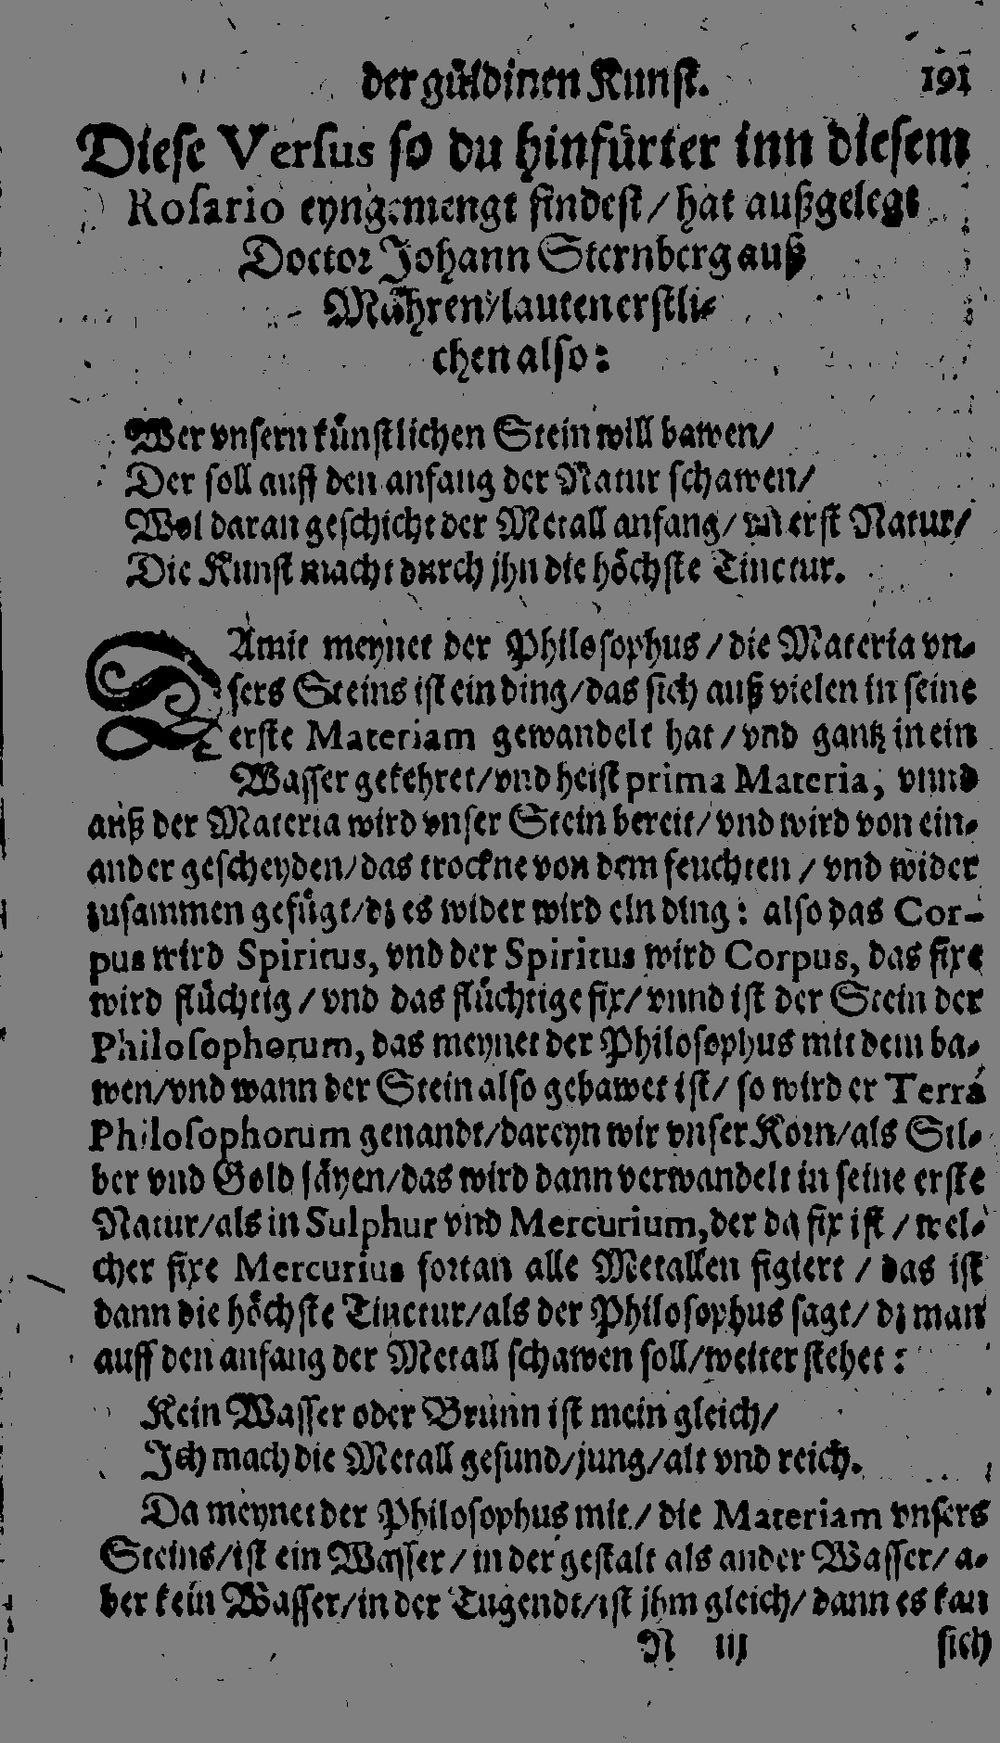 der guͤldinen Kunſt. 191
Dieſe Verſus ſo du hinfuͤrter inn dieſem
Roſario eyngemengt findeſt / hat außgelegt
Doctor Johann Sternberg auß
Maͤhren / lauten erſtli⸗
chen alſo:
Wer vnſern kuͤnſtlichen Stein will bawen /
Der ſoll auff den anfang der Natur ſchawen /
Wol daran geſchicht der Metall anfang / vñ erſt Natur /
Die Kunſt macht durch jhn die hoͤchſte Tinctur.
DAmit meynet der Philoſophus / die Materia vn⸗
ſers Steins iſt ein ding / das ſich auß vielen in ſeine
erſte Materiam gewandelt hat / vnd gantz in ein
Waſſer gekehret / vnd heiſt prima Materia, vnnd
auß der Materia wird vnſer Stein bereit / vnd wird von ein⸗
ander geſcheyden / das trockne von dem feuchten / vnd wider
zuſammen gefuͤgt / dz es wider wird ein ding: alſo das Cor-
pus wird Spiritus, vnd der Spiritus wird Corpus, das fixe
wird fluͤchtig / vnd das fluͤchtige fix / vnnd iſt der Stein der
Philoſophorum, das meynet der Philoſophus mit dem ba⸗
wen / vnd wann der Stein alſo gebawet iſt / ſo wird er Terra
Philoſophorum genandt / dareyn wir vnſer Korn / als Sil⸗
ber vnd Gold ſaͤyen / das wird dann verwandelt in ſeine erſte
Natur / als in Sulphur vnd Mercurium, der da fix iſt / wel⸗
cher fixe Mercurius fortan alle Metallen figiert / das iſt
dann die hoͤchſte Tinctur / als der Philoſophus ſagt / dz man
auff den anfang der Metall ſchawen ſoll / weiter ſtehet:
Kein Waſſer oder Brunn iſt mein gleich /
Ich mach die Metall geſund / jung / alt vnd reich.
Da meynet der Philoſophus mit / die Materiam vnſers
Steins / iſt ein Waſſer / in der geſtalt als ander Waſſer / a⸗
ber kein Waſſer / in der Tugendt / iſt jhm gleich / dann es kan
N iij ſich